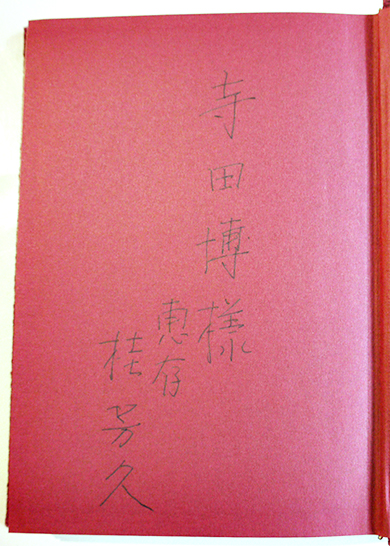 寺田博様
恵存
桂芳久